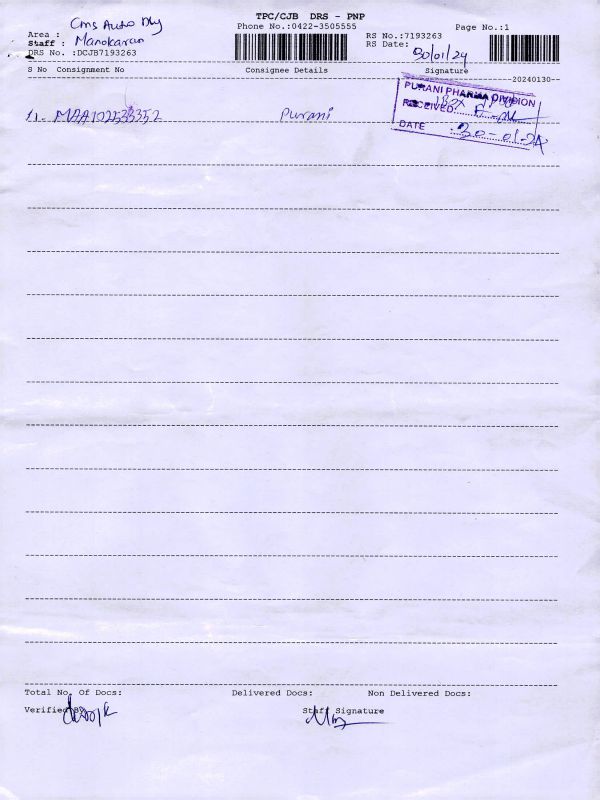 TPC/CJB DRS - PNP
Cms Auto Dly
Area :
Phone No.:0422-3505555
Page No.:1
Staff : Manokaran
RS No.:7193263
DRS No. :DCJB7193263
RS Date: 30/01/24
S No Consignment No
Consignee Details
Signature
20240130
PURANI PHARMA DIVISION
RECEIVED
DATE : 30-01-24
1. MAA102533352 Purani
Total No. Of Docs:
Delivered Docs:
Non Delivered Docs:
Verified By
Staff Signature